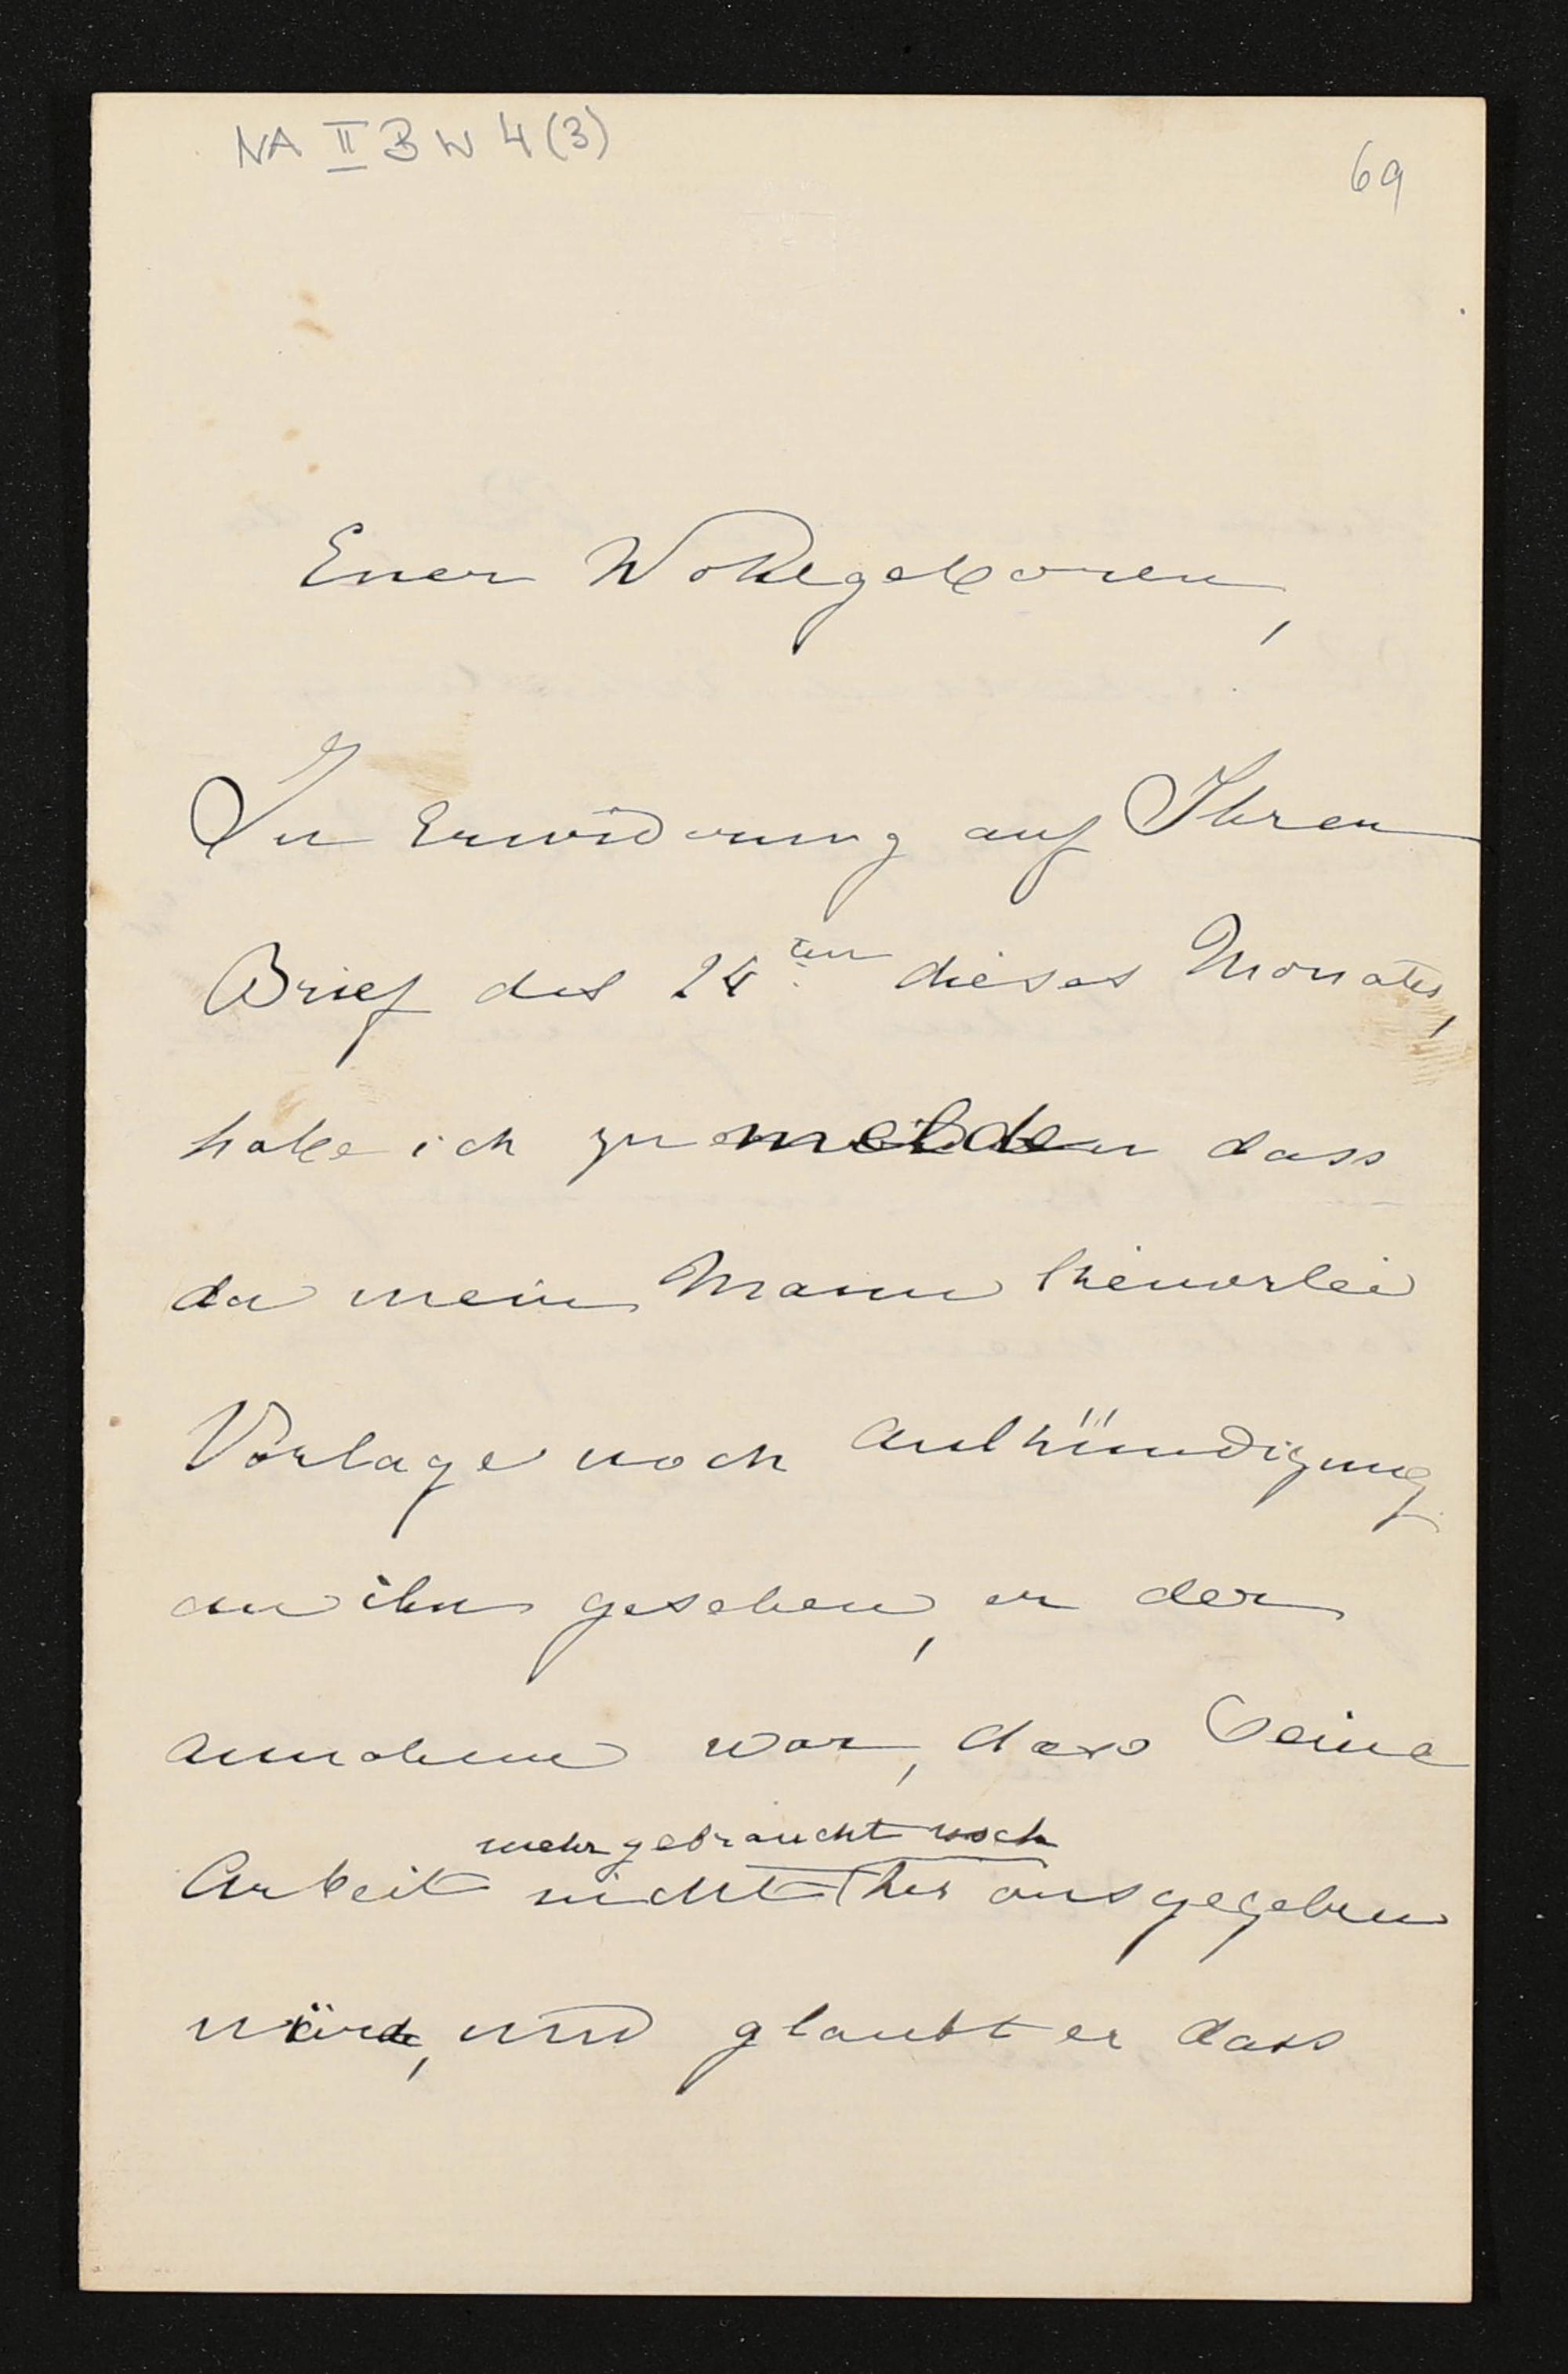 NA II BW 4(3)
69
Euer Wohlgeboren,
In Erwiderung auf Ihren
Brief des 24ten dieses Monats,
habe ich zu melden dass
da mein Mann keinerlei
Vorlage noch
an ihn gesehen, er der
Annahme war, dass Seine
mehr gebraucht noch
Arbeit nicht herausgegeben
würde, und glaubt er dass